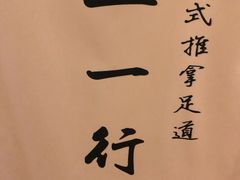 式推拿足道
一行